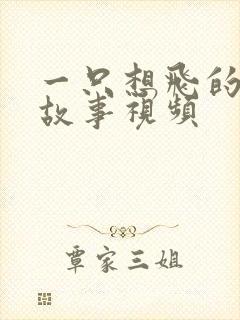 一只想飛的
故事視頻
覃家三姐